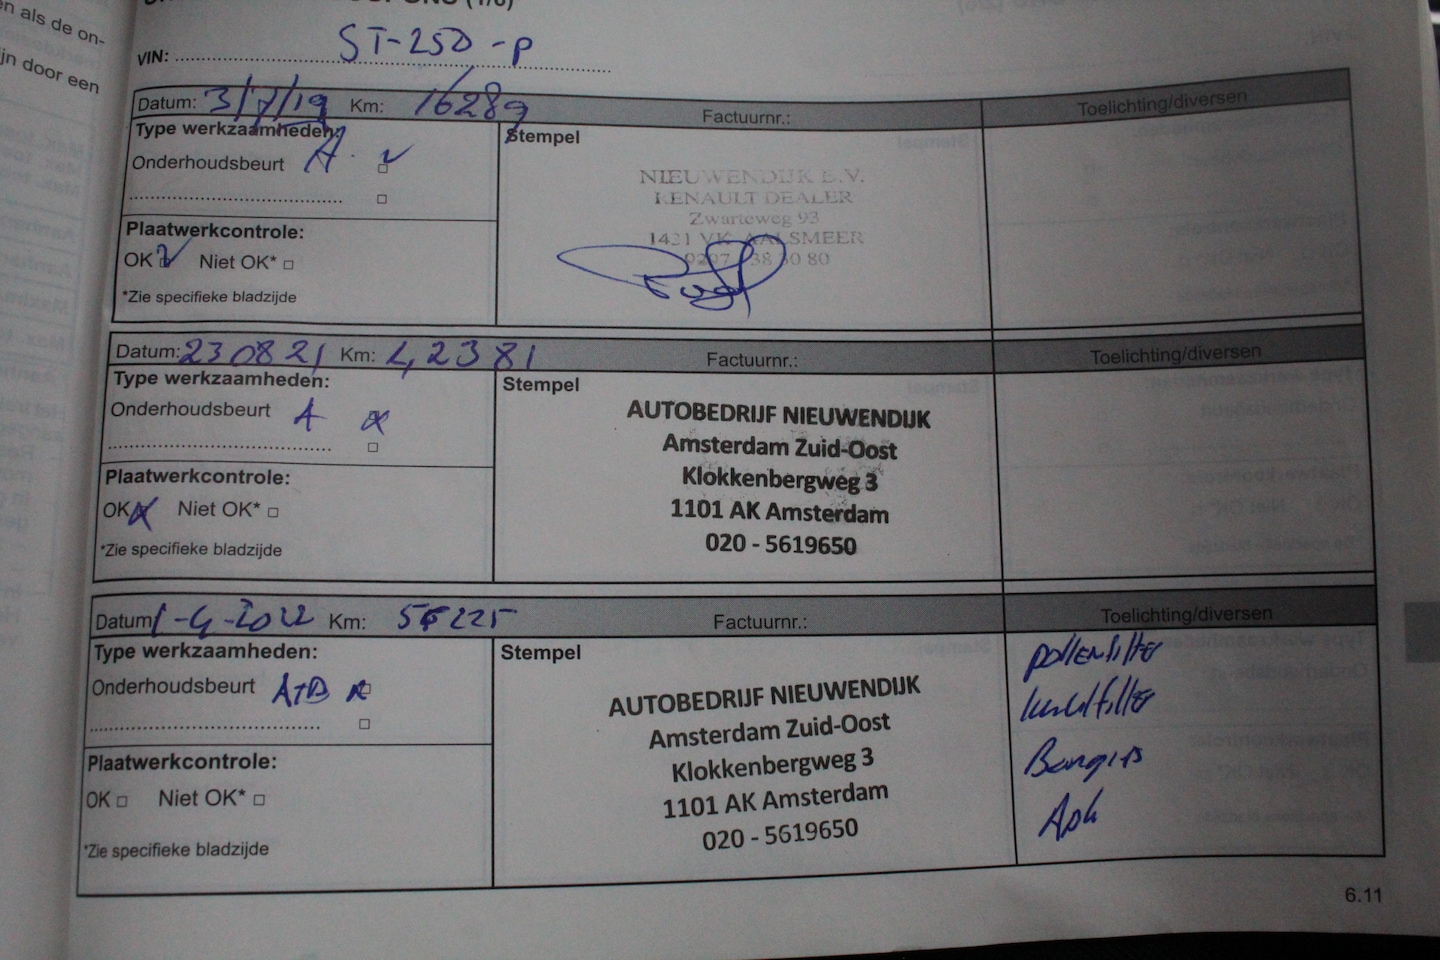 en als de on-
ijn door een
VIN: ST-250-P
Datum: 3/7/19 Km: 16289 Factuurnr.: Toelichting/diversen
Type werkzaamheden: Stempel
Onderhoudsbeurt A
NIEUWENDIJK B.V.
RENAULT DEALER
Zwarteweg 93
1431 VK AALSMEER
0297 38 30 80
Plaatwerkcontrole:
OK Niet OK*
*Zie specifieke bladzijde
Datum: 230821 Km: 42381 Factuurnr.: Toelichting/diversen
Type werkzaamheden: Stempel
Onderhoudsbeurt A
AUTOBEDRIJF NIEUWENDIJK
Amsterdam Zuid-Oost
Klokkenbergweg 3
1101 AK Amsterdam
020 - 5619650
Plaatwerkcontrole:
OK Niet OK*
*Zie specifieke bladzijde
Datum 1-4-2022 Km: 56225 Factuurnr.: Toelichting/diversen
Type werkzaamheden: Stempel
Onderhoudsbeurt A+B
AUTOBEDRIJF NIEUWENDIJK
Amsterdam Zuid-Oost
Klokkenbergweg 3
1101 AK Amsterdam
020 - 5619650
pollenfilter
luchtfilter
Bougies
Apk
Plaatwerkcontrole:
OK Niet OK*
*Zie specifieke bladzijde
6.11